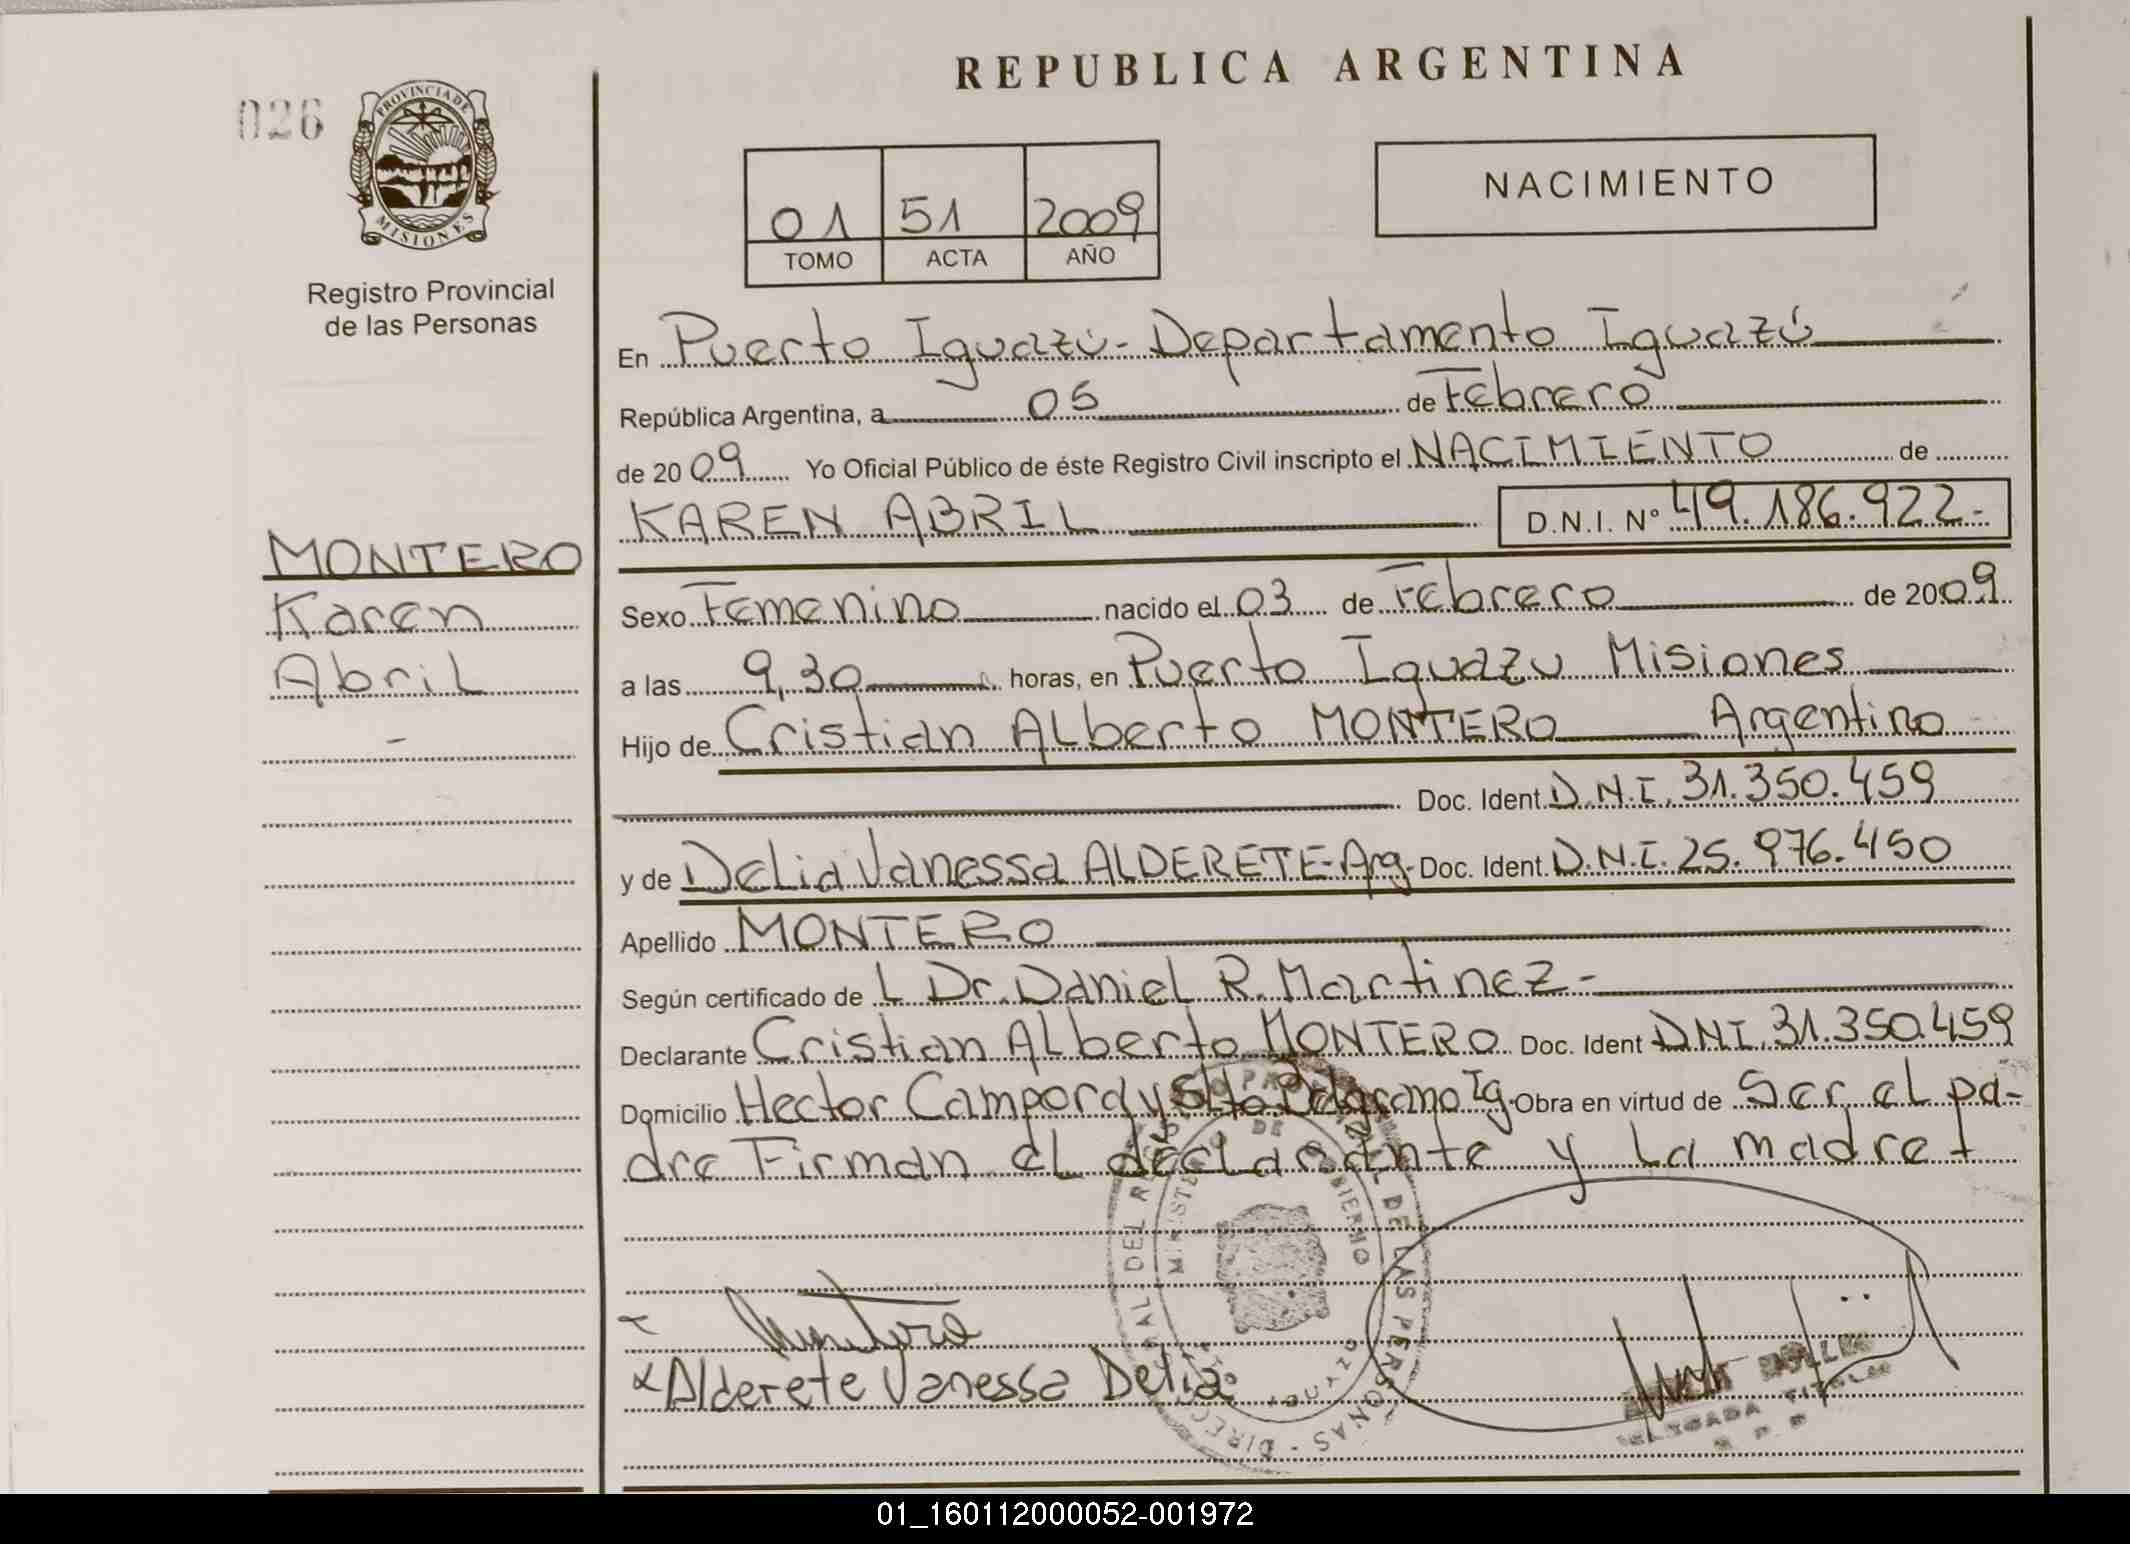 REPUBLICA ARGENTINA
026
PROVINCIA DE
MISIONES
Registro Provincial
de las Personas
01 51 2009
TOMO ACTA AÑO
NACIMIENTO
En Puerto Iguazú - Departamento Iguazú
República Argentina, a 05 de Febrero
de 2009 Yo Oficial Público de éste Registro Civil inscripto el NACIMIENTO de
KAREN ABRIL D.N.I. Nº 49.186.922-
MONTERO
Karen
Abril
Sexo Femenino nacido el 03 de Febrero de 2009
a las 9,30 horas, en Puerto Iguazu Misiones
Hijo de Cristian Alberto MONTERO Argentino
Doc. Ident. D.N.I. 31.350.459
y de Delia Vanessa ALDERETE- Arg- Doc. Ident. D.N.I. 25.976.450
Apellido MONTERO
Según certificado de L Dr. Daniel R. Martinez-
Declarante Cristian Alberto MONTERO Doc. Ident DNI. 31.350.459
Domicilio Hector Campora y Ig. Obra en virtud de Ser el pa-
dre Firman el declarante y La madre
Montero
Alderete Vanessa Delia
DELEGADA TITULAR
01_160112000052-001972